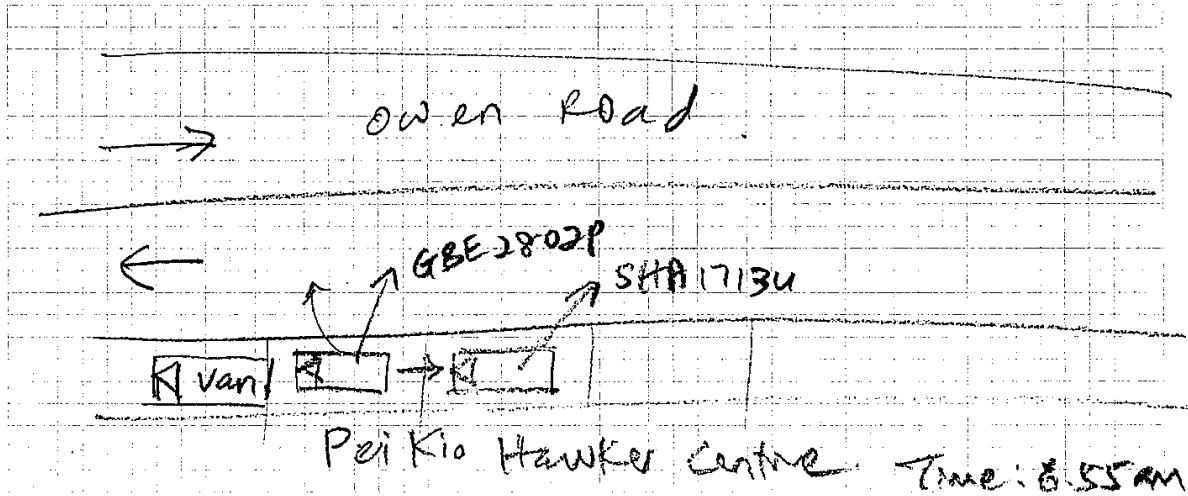 Owen Road
GBE2802P
SHA1713U
Van
Pei Kio Hawker Centre
Time: 8.55 AM